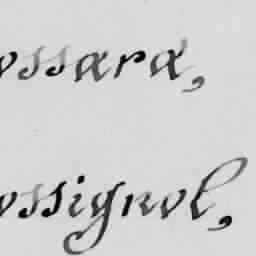 ossard,
ossignol,